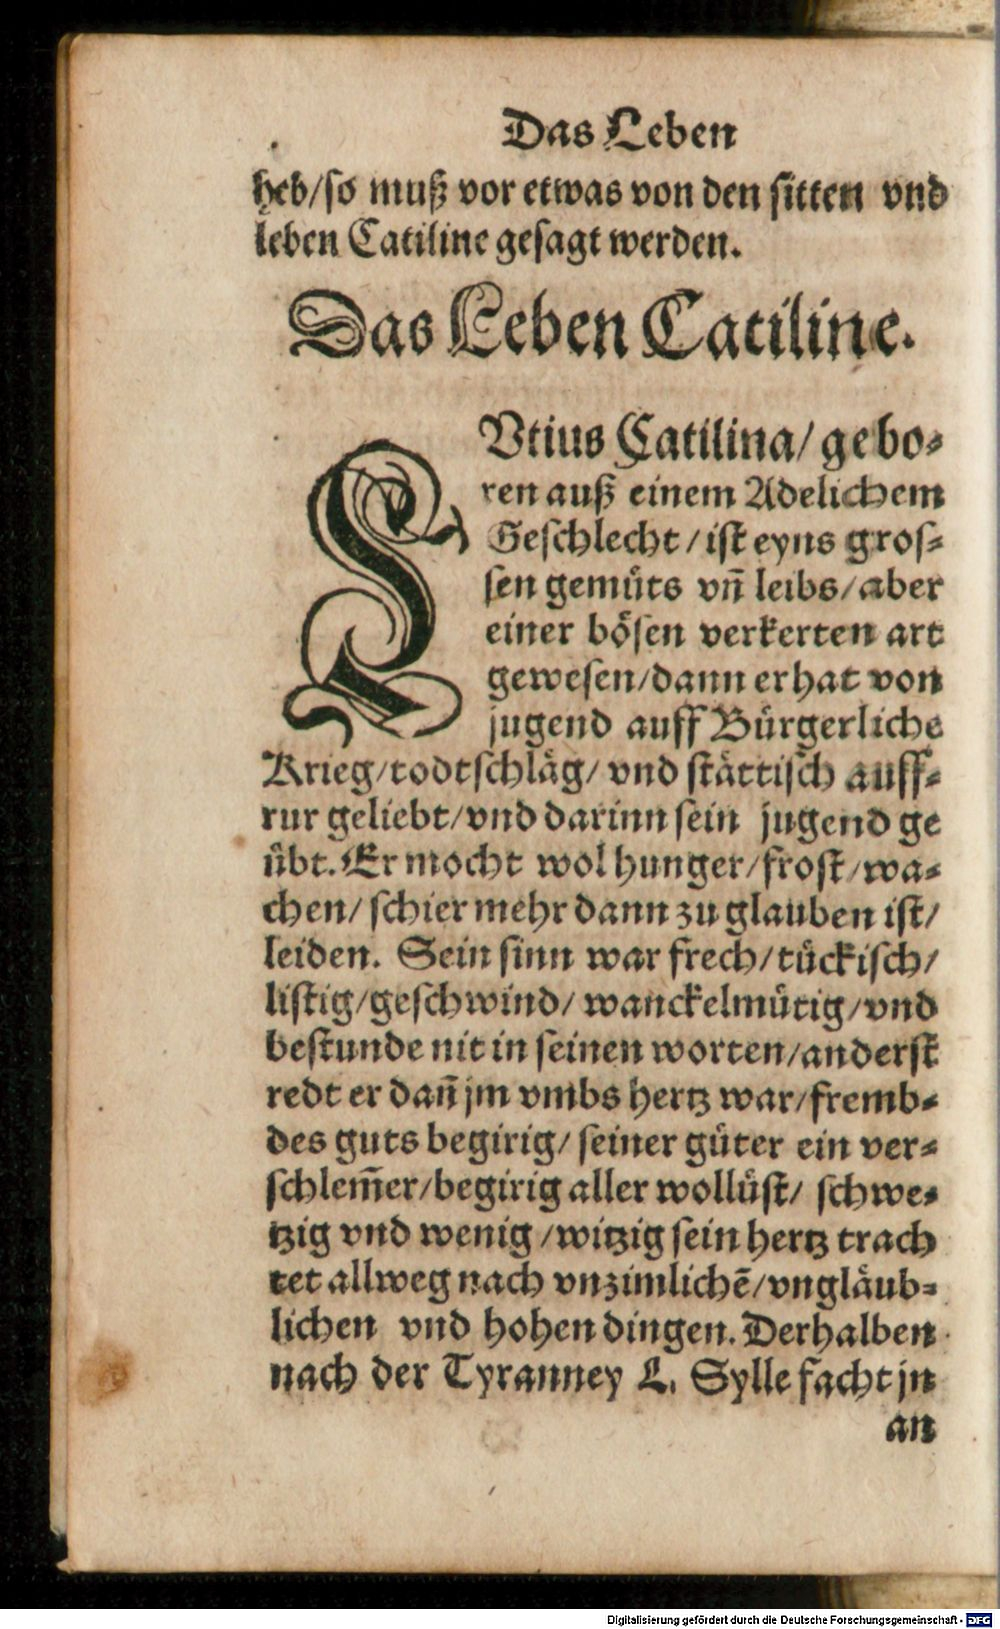 Das Leben
heb/so muß vor etwas von den sitten vnd
leben Catiline gesagt werden.
Das Leben Catiline.
LVtius Catilina/ gebo⸗
ren auß einem Adelichem
Geschlecht/ist eyns gros⸗
sen gemuͤts vñ leibs/aber
einer boͤsen verkerten art
gewesen/dann er hat von
jugend auff Buͤrgerliche
Krieg/todtschlaͤg/ vnd staͤttisch auff⸗
rur geliebt/vnd darinn sein jugend ge
uͤbt. Er mocht wol hunger/frost/wa⸗
chen/ schier mehr dann zu glauben ist/
leiden. Sein sinn war frech/tuͤckisch/
listig/geschwind/ wanckelmuͤtig/vnd
bestunde nit in seinen worten/anderst
redt er dañ jm vmbs hertz war/fremb⸗
des guts begirig/ seiner guͤter ein ver⸗
schlem̃er/begirig aller wolluͤst/ schwe⸗
tzig vnd wenig /witzig sein hertz trach
tet allweg nach vnzimlichẽ/vnglaͤub⸗
lichen vnd hohen dingen. Derhalben
nach der Tyranney L. Sylle facht jn
an
Digitalisierung gefördert durch die Deutsche Forschungsgemeinschaft - DFG